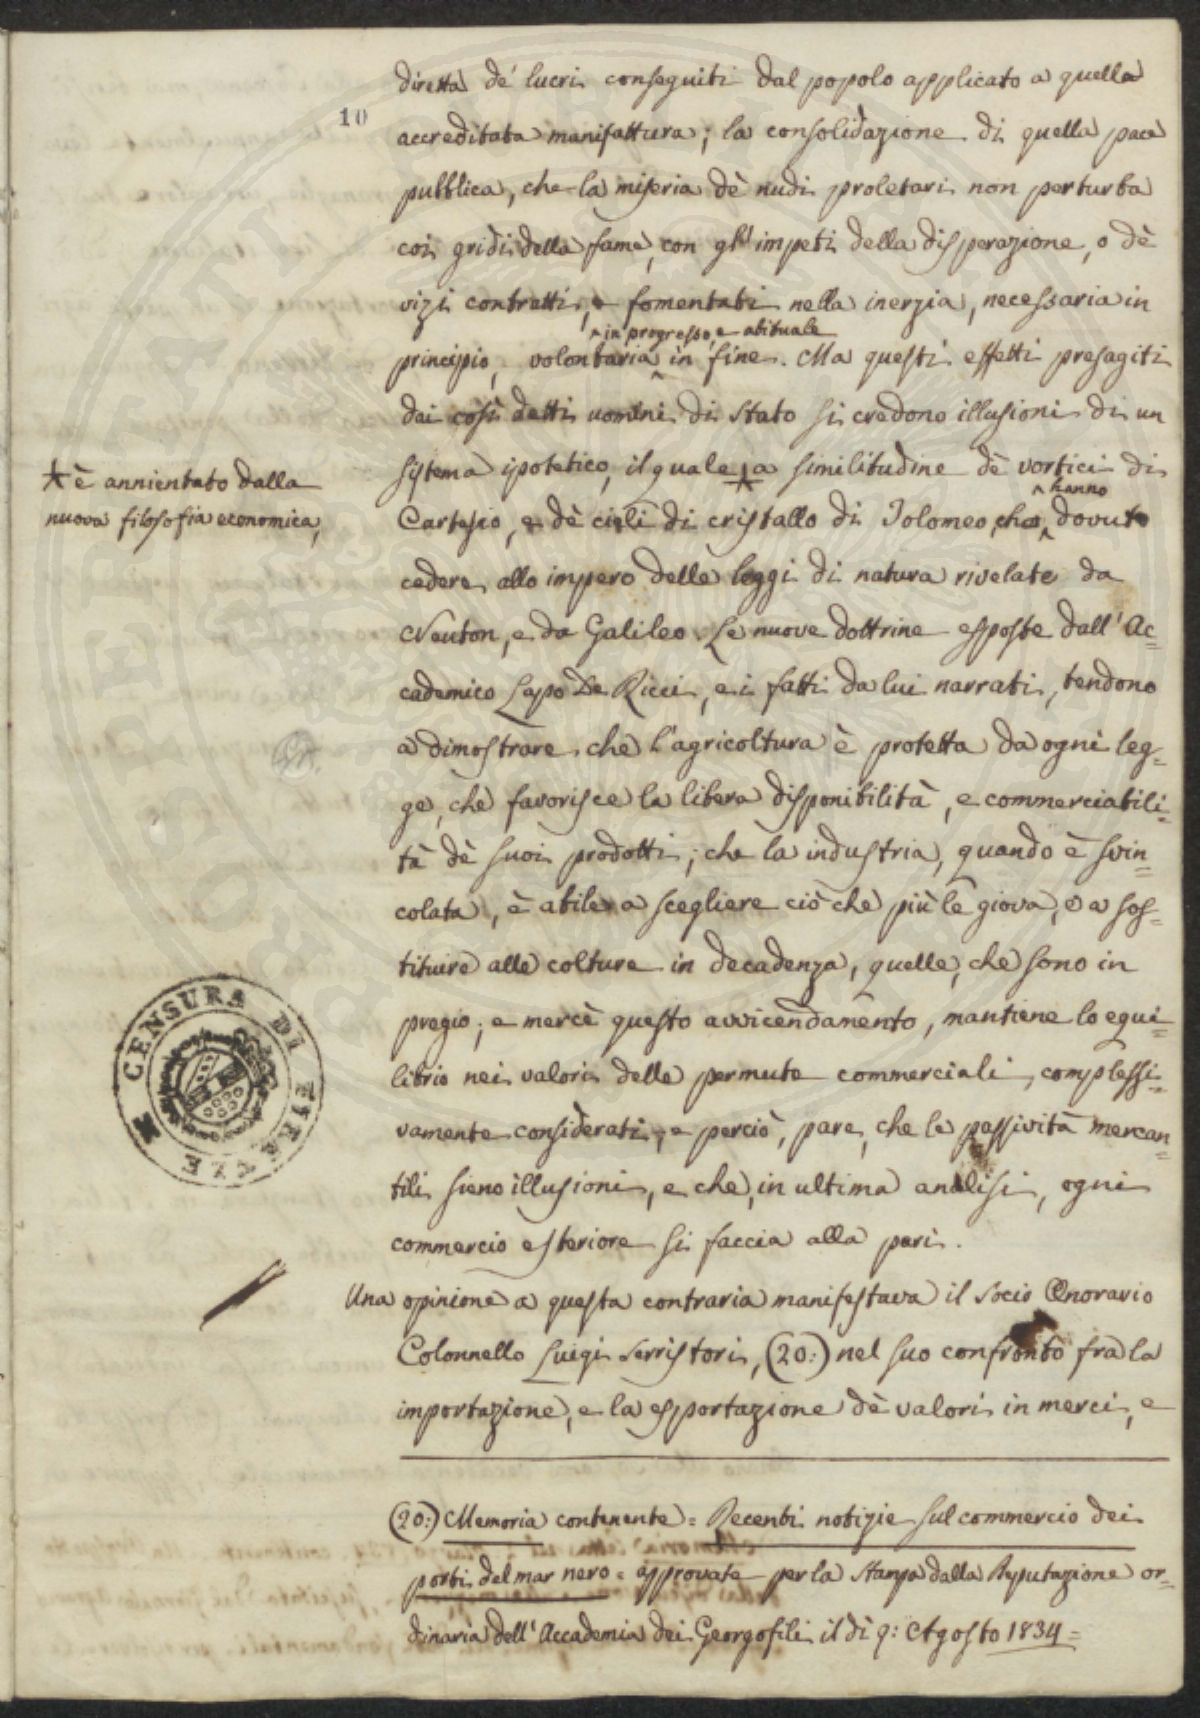 10
diretta de' lucri conseguiti dal popolo applicato a quella
accreditata manifattura; la consolidazione di quella pace
pubblica, che la miseria dè nudi proletari non perturba
coi gridi della fame, con gl'impeti della disperazione, o dè
vizi contratti, e fomentati nella inerzia, necessaria in
^ in progresso, e abituale
principio, volontaria ^ in fine. Ma questi effetti presagiti
dai così detti uomini di Stato si credono illusioni di un
sistema ipotetico, il quale * a similitudine dè vortici di
* è annientato dalla
nuova filosofia economica,
^ hanno
Cartesio, e dè cieli di cristallo di Tolomeo, che ^ dovuto
cedere allo impero delle leggi di natura rivelate da
Neuton, e da Galileo. Le nuove dottrine esposte dall'Ac=
cademico Lapo De Ricci, e i fatti da lui narrati, tendono
a dimostrare che l'agricoltura è protetta da ogni leg=
ge, che favorisce la libera disponibilità, e commerciabili=
tà dè suoi prodotti; che la industria, quando è svin=
colata, è abile a scegliere ciò che più le giova, o a sos=
tituire alle colture in decadenza, quelle, che sono in
pregio; e mercè questo avvicendamento, mantiene lo equi=
librio nei valori delle permute commerciali, complessi=
vamente considerati; e perciò, pare, che le passività mercan=
tili sieno illusioni, e che, in ultima analisi, ogni
commercio esteriore si faccia alla pari.
Una opinione a questa contraria manifestava il Socio Onorario
Colonnello Luigi Serristori, (20:) nel suo confronto fra la
importazione, e la esportazione dè valori in merci, e
(20:) Memoria contenente = Recenti notizie sul commercio dei
porti del mar nero = approvate per la stampa dalla Deputazione or=
dinaria dell'Accademia dei Georgofili il dì 9: Agosto 1834=
CENSURA DI FIRENZE